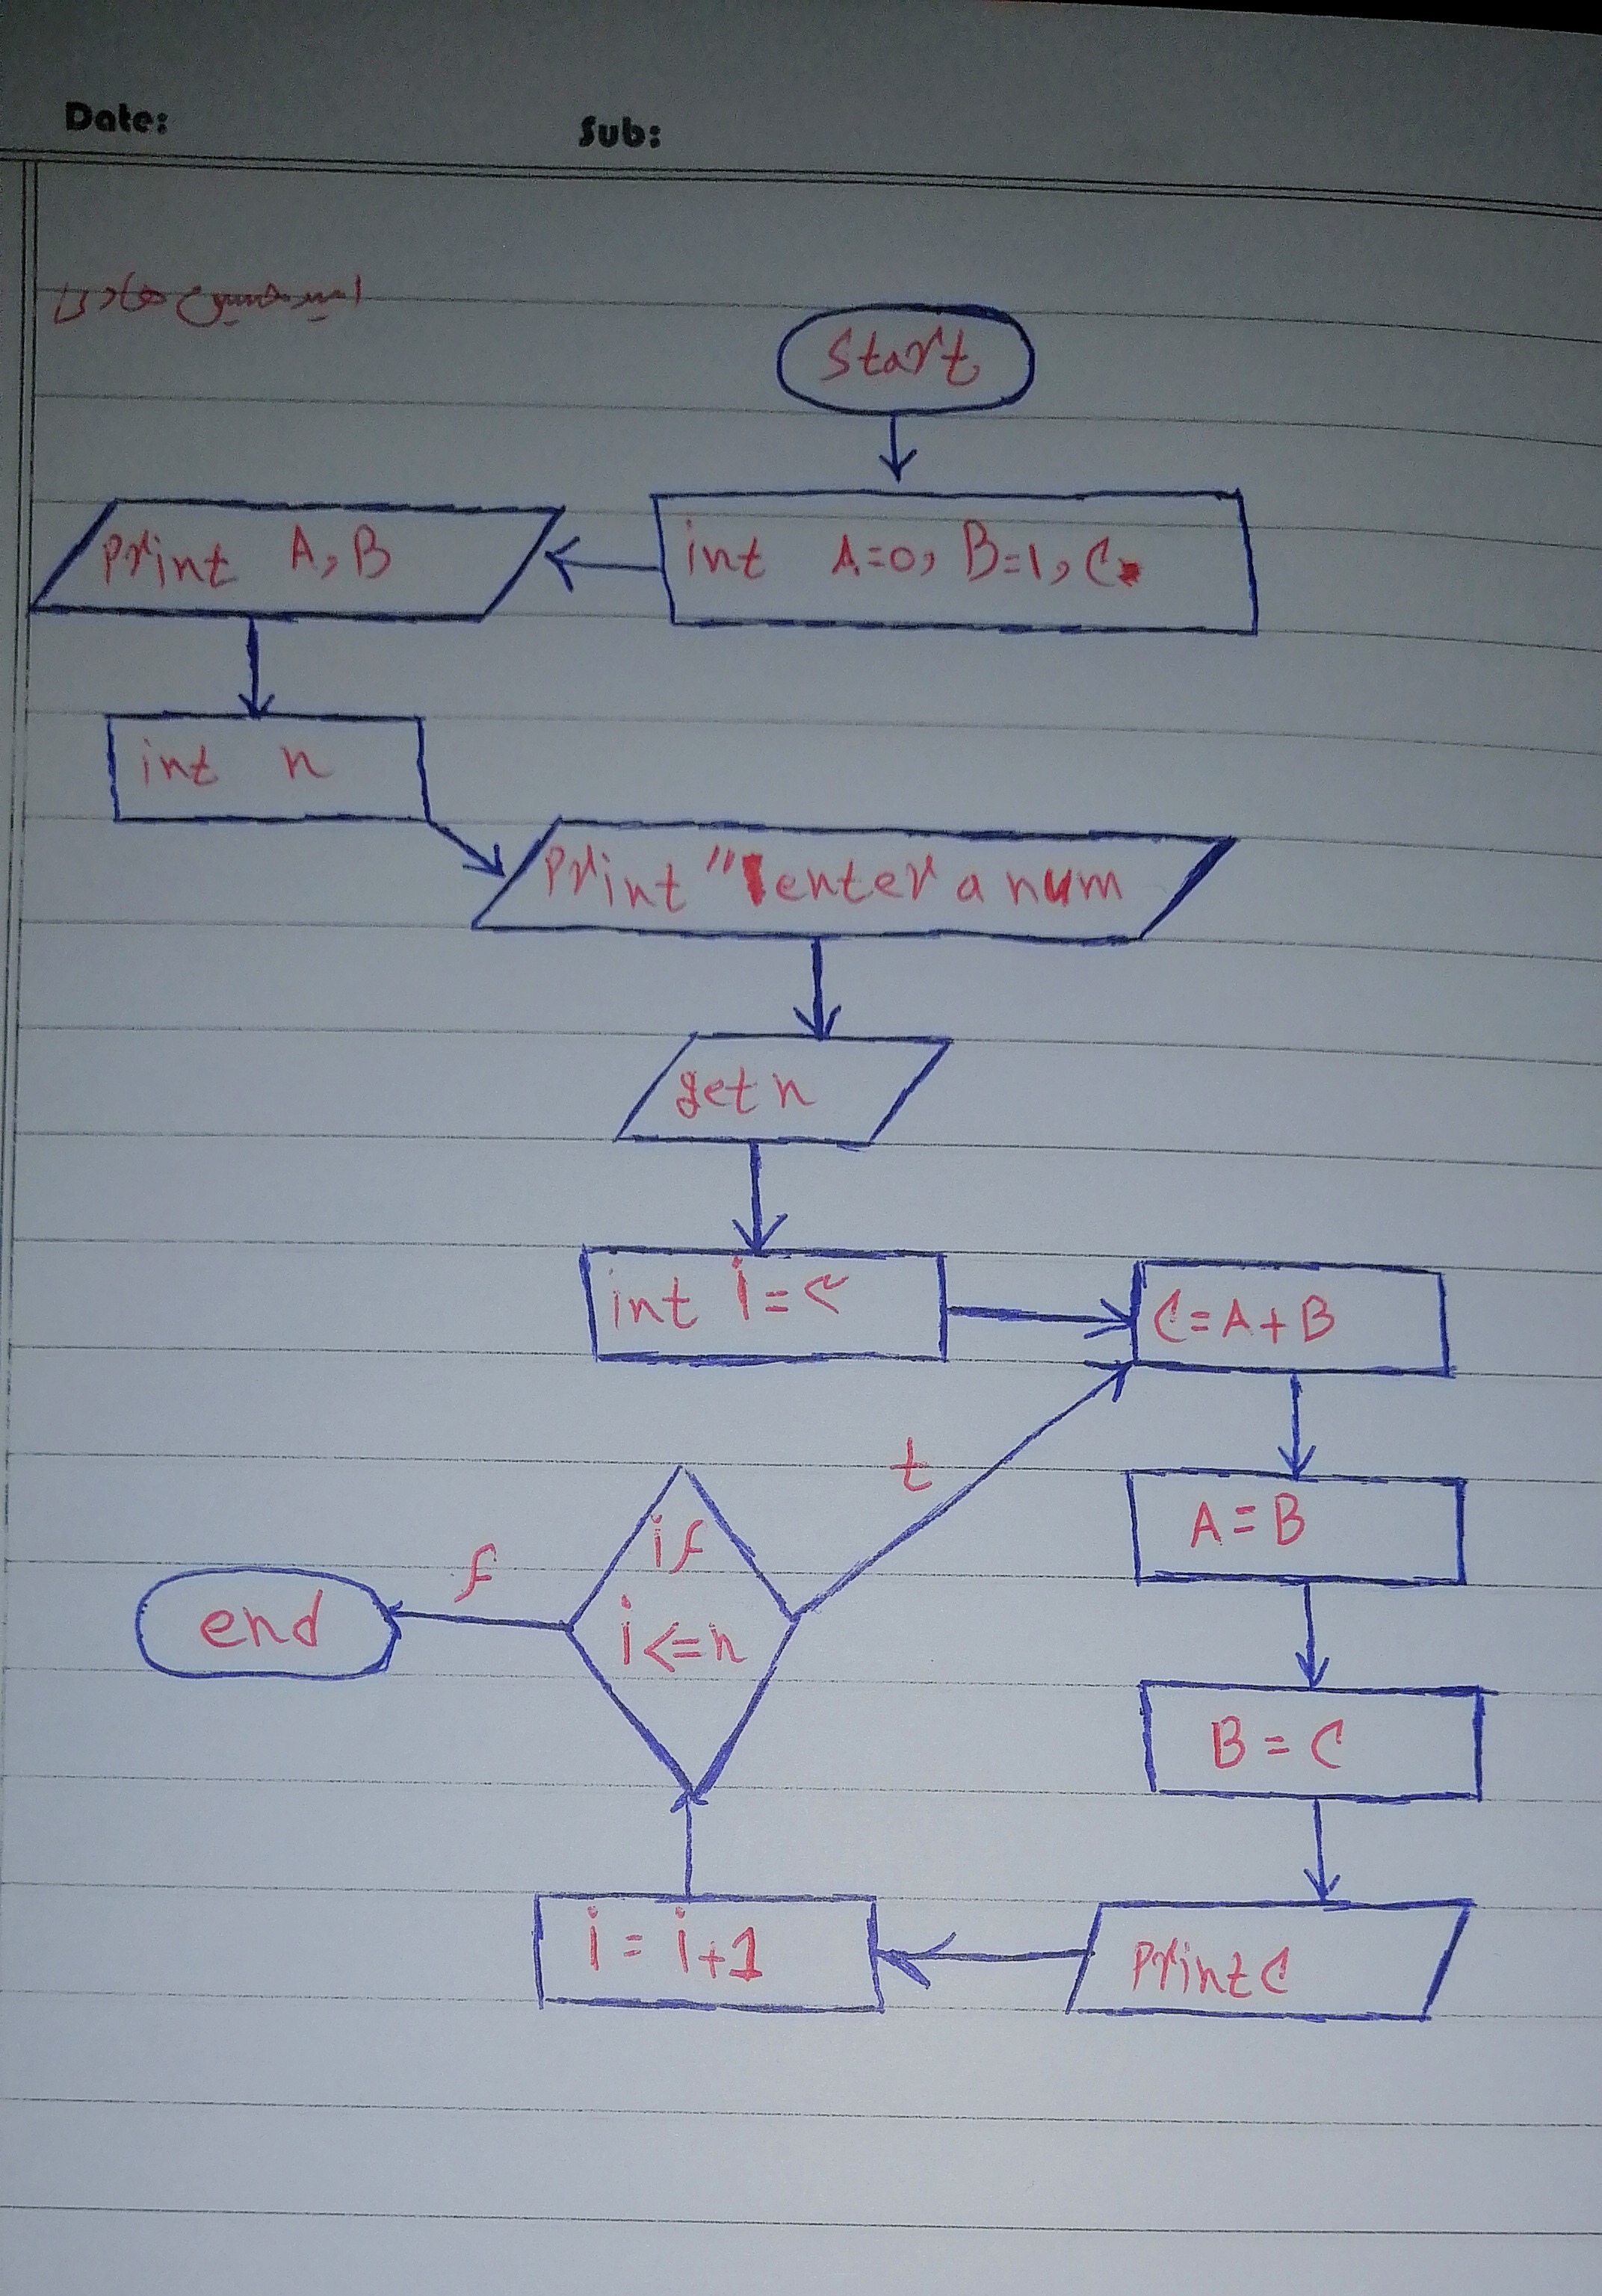 Date:
Sub:
امیرحسین هادی
start
int A=0, B=1, C
print A, B
int n
print " enter a num
get n
int i =
C=A+B
A=B
B=C
print C
i = i+1
if
i<=n
t
f
end